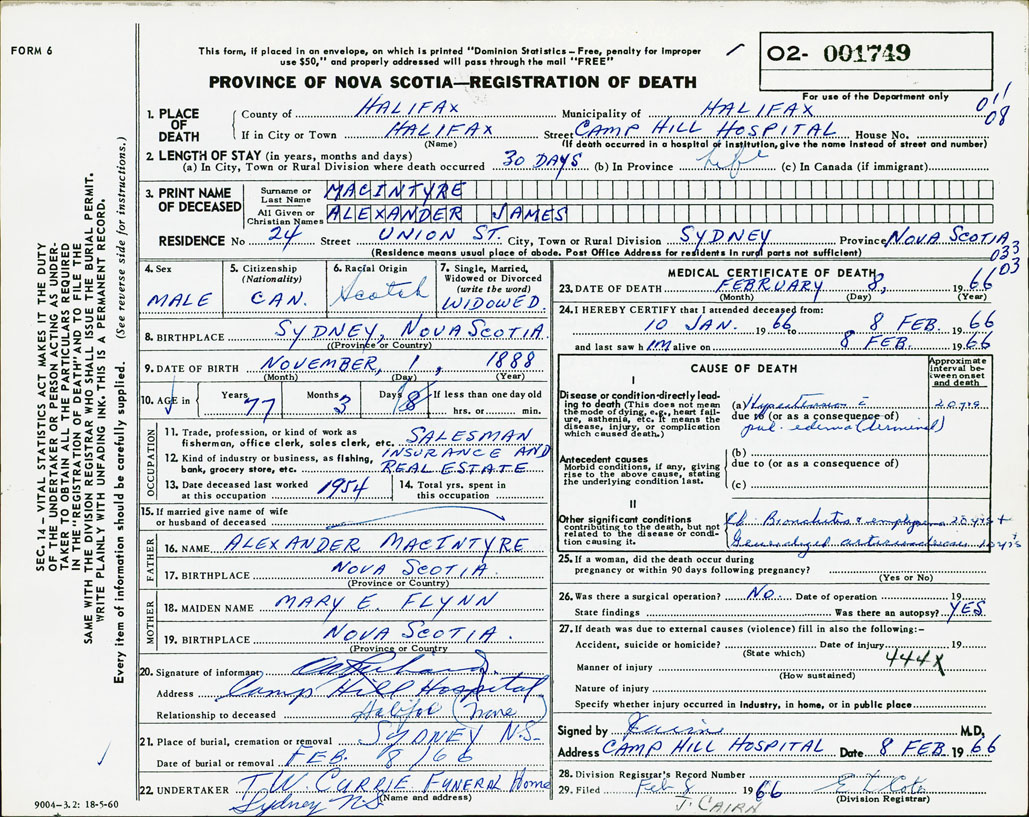 FORM 6
This form, if placed in an envelope, on which is printed "Dominion Statistics – Free, penalty for improper
use $50," and properly addressed will pass through the mail "FREE"
O2- 001749
For use of the Department only
PROVINCE OF NOVA SCOTIA—REGISTRATION OF DEATH
011
08
1. PLACE OF DEATH
County of HALIFAX Municipality of HALIFAX
If in City or Town HALIFAX Street CAMP HILL HOSPITAL House No.
(Name) (If death occurred in a hospital or institution, give the name instead of street and number)
2. LENGTH OF STAY (in years, months and days)
(a) In City, Town or Rural Division where death occurred 30 DAYS (b) In Province Life (c) In Canada (if immigrant)
3. PRINT NAME OF DECEASED
Surname or Last Name MACINTYRE
All Given or Christian Names ALEXANDER JAMES
RESIDENCE No 24 Street UNION ST. City, Town or Rural Division SYDNEY Province NOVA SCOTIA
(Residence means usual place of abode. Post Office Address for residents in rural parts not sufficient)
033
033
03
4. Sex MALE
5. Citizenship (Nationality) CAN.
6. Racial Origin Scotch
7. Single, Married, Widowed or Divorced (write the word) WIDOWED
8. BIRTHPLACE SYDNEY, NOVA SCOTIA
(Province or Country)
9. DATE OF BIRTH NOVEMBER, 1, 1888
(Month) (Day) (Year)
10. AGE in Years 77 Months 3 Days 8 If less than one day old hrs. or min.
OCCUPATION
11. Trade, profession, or kind of work as fisherman, office clerk, sales clerk, etc. SALESMAN
12. Kind of industry or business, as fishing, bank, grocery store, etc. INSURANCE AND REAL ESTATE
13. Date deceased last worked at this occupation 1954
14. Total yrs. spent in this occupation
15. If married give name of wife or husband of deceased
FATHER
16. NAME ALEXANDER MACINTYRE
17. BIRTHPLACE NOVA SCOTIA
(Province or Country)
MOTHER
18. MAIDEN NAME MARY E. FLYNN
19. BIRTHPLACE NOVA SCOTIA.
(Province or Country)
20. Signature of informant
Address Camp Hill Hospital
Halifax
Relationship to deceased (None)
21. Place of burial, cremation or removal SYDNEY N.S.
Date of burial or removal FEB. 8/66
22. UNDERTAKER T.W. CURRIE FUNERAL Home
Sydney NS
(Name and address)
MEDICAL CERTIFICATE OF DEATH
23. DATE OF DEATH FEBRUARY 8, 1966
(Month) (Day) (Year)
24. I HEREBY CERTIFY that I attended deceased from:
10 JAN. 1966 8 FEB. 1966
and last saw h IM alive on 8 FEB. 1966
CAUSE OF DEATH
Approximate interval between onset and death
I
Disease or condition directly leading to death (This does not mean the mode of dying, e.g., heart failure, asthenia, etc. It means the disease, injury, or complication which caused death.)
(a) Hypertension c 20 yrs
due to (or as a consequence of)
pul. edema (terminal)
Antecedent causes
Morbid conditions, if any, giving rise to the above cause, stating the underlying condition last.
(b)
due to (or as a consequence of)
(c)
II
Other significant conditions contributing to the death, but not related to the disease or condition causing it.
Ch. Bronchitis & emphysema 20 yrs +
Generalized arteriosclerosis 10 yrs +
25. If a woman, did the death occur during pregnancy or within 90 days following pregnancy?
(Yes or No)
26. Was there a surgical operation? No. Date of operation 19
State findings Was there an autopsy? YES
27. If death was due to external causes (violence) fill in also the following:–
Accident, suicide or homicide? Date of injury 19
(State which)
444X
Manner of injury
(How sustained)
Nature of injury
Specify whether injury occurred in industry, in home, or in public place
Signed by Cairn M.D.
Address CAMP HILL HOSPITAL Date 8 FEB 1966
28. Division Registrar's Record Number
29. Filed Feb 8 1966
(Division Registrar)
J. CAIRN
SEC. 14 – VITAL STATISTICS ACT MAKES IT THE DUTY
OF THE UNDERTAKER OR PERSON ACTING AS UNDER-
TAKER TO OBTAIN ALL THE PARTICULARS REQUIRED
IN THE "REGISTRATION OF DEATH" AND TO FILE THE
SAME WITH THE DIVISION REGISTRAR WHO SHALL ISSUE THE BURIAL PERMIT.
WRITE PLAINLY WITH UNFADING INK. THIS IS A PERMANENT RECORD.
Every item of information should be carefully supplied. (See reverse side for instructions.)
9004-3.2: 18-5-60